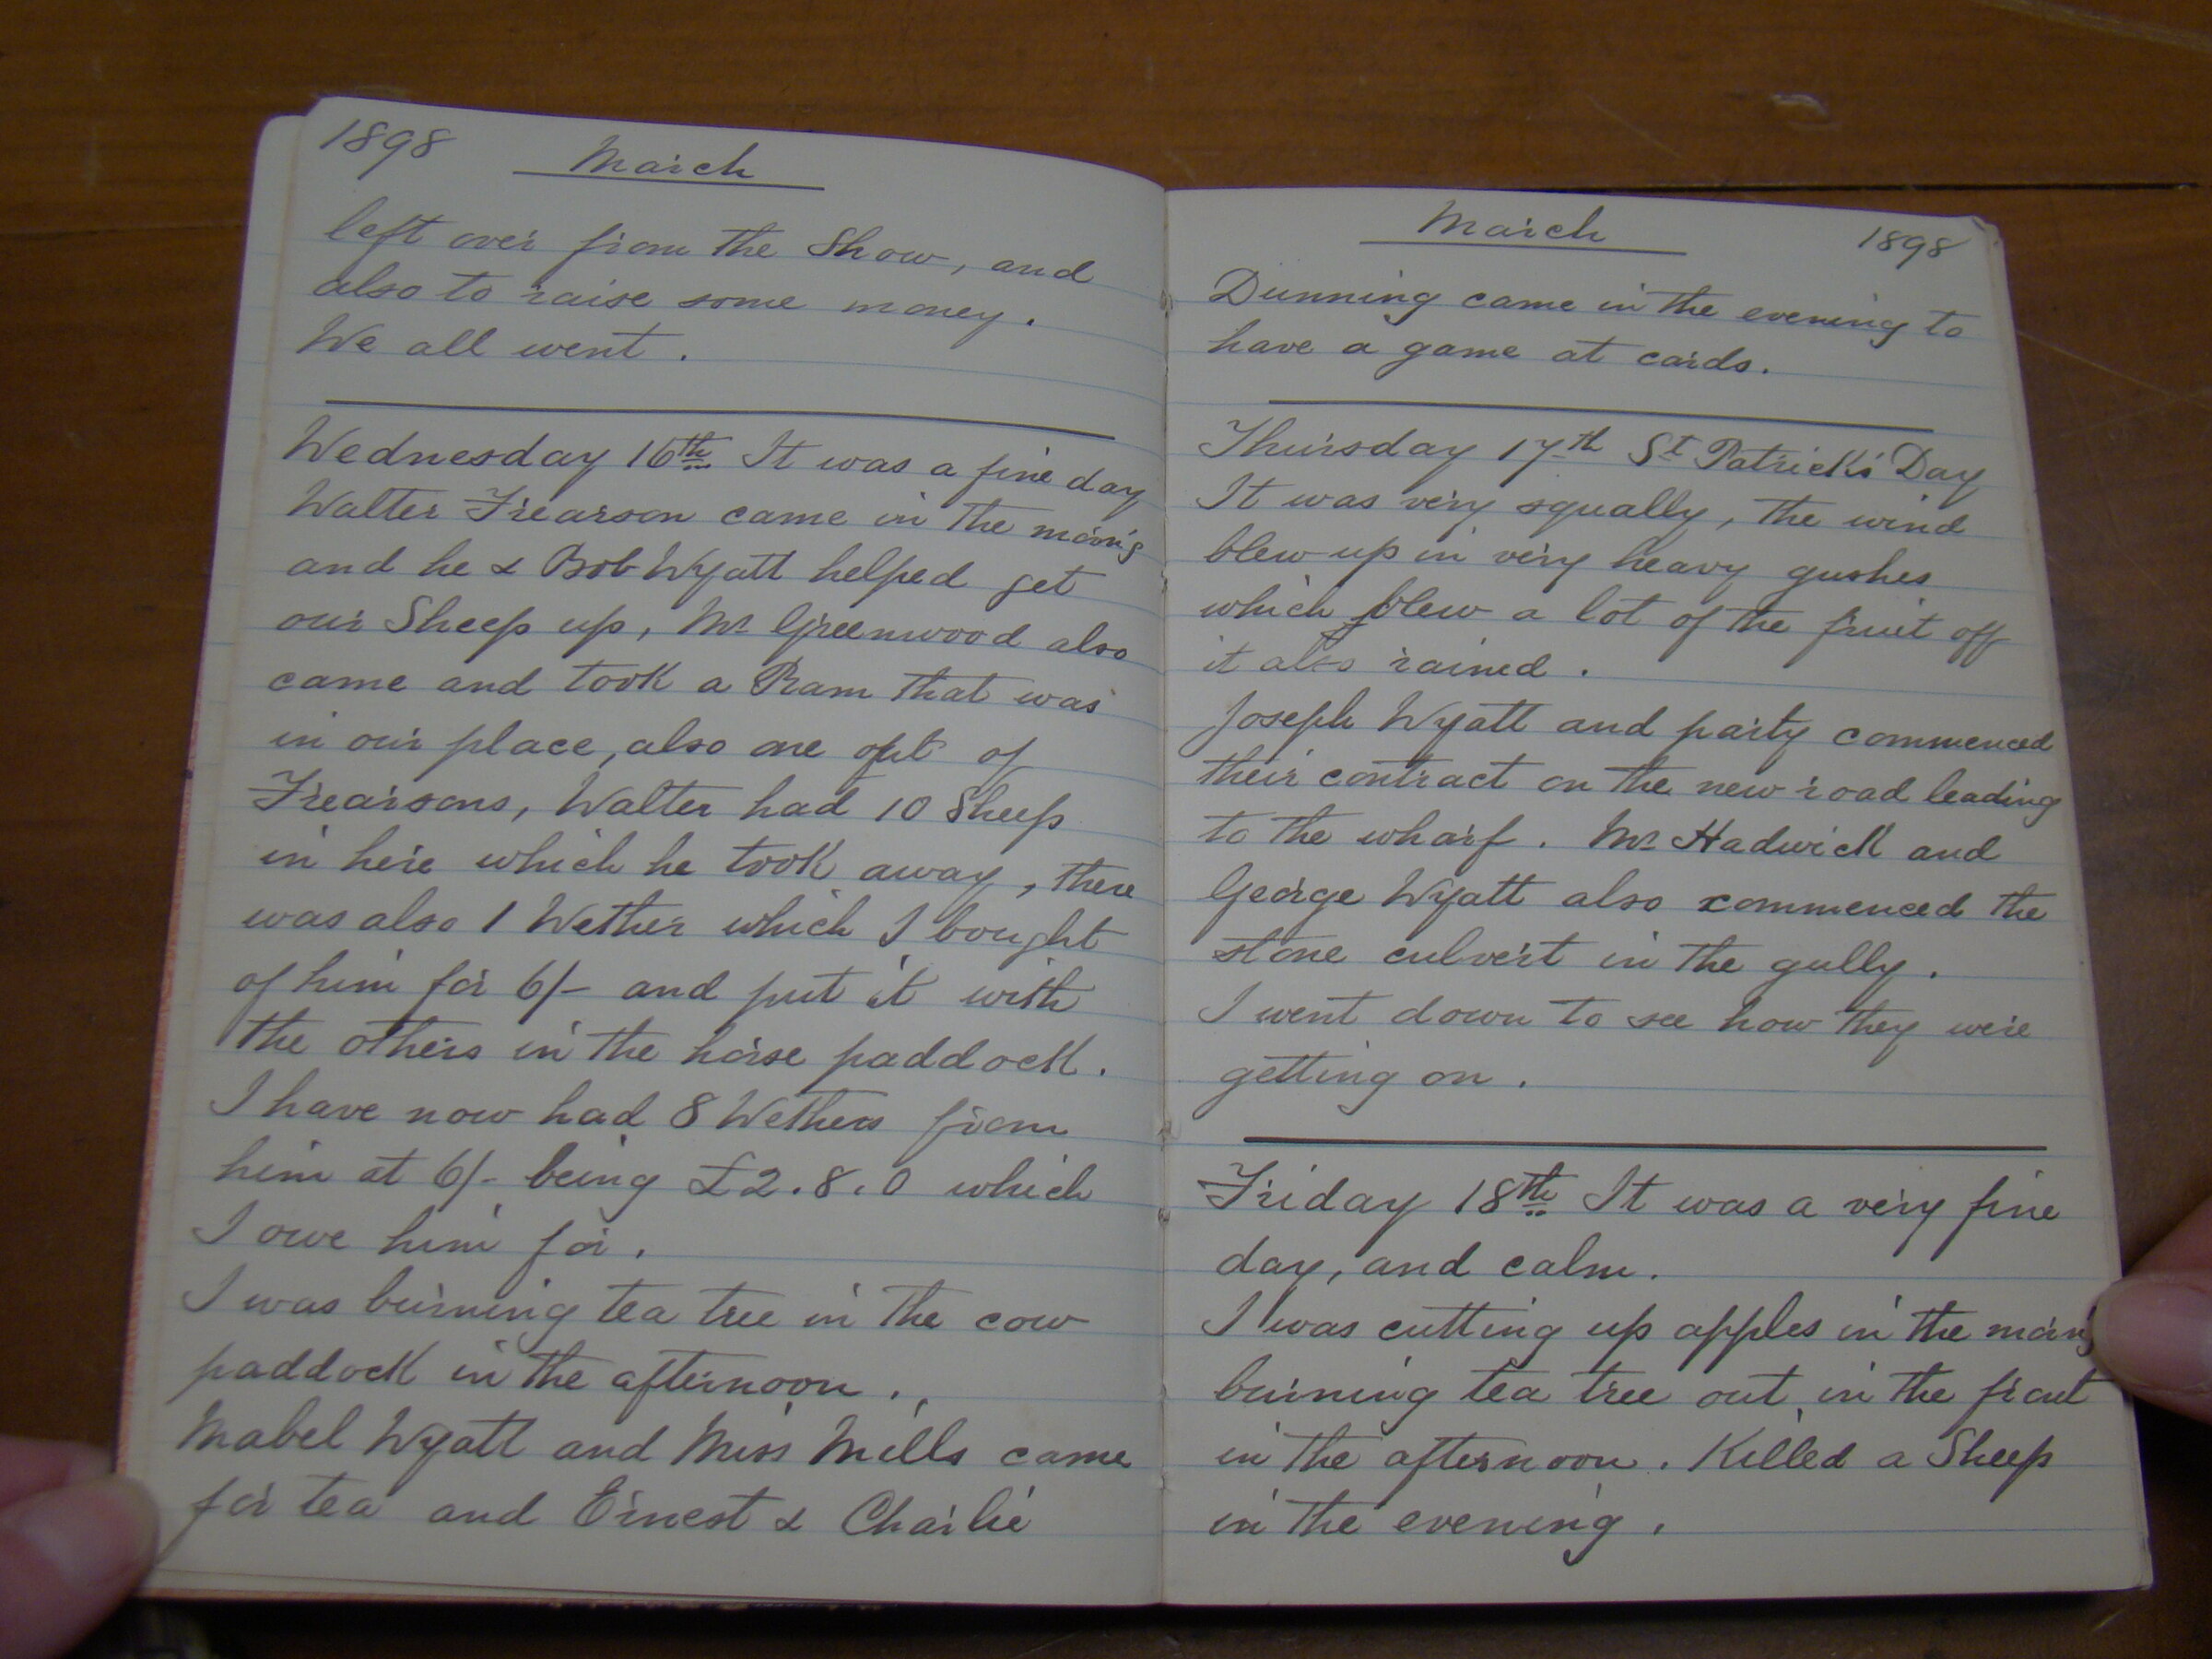 1898 March
left over from the Show, and
also to raise some money.
We all went.
Wednesday 16th It was a fine day
Walter Frearson came in the morn'g
and he & Bob Wyatt helped get
our Sheep up, Mr Greenwood also
came and took a Ram that was
in our place, also one out of
Frearsons, Walter had 10 Sheep
in here which he took away, there
was also 1 Wether which I bought
of him for 6/- and put it with
the others in the horse paddock.
I have now had 8 Wethers from
him at 6/- being £2.8.0 which
I owe him for.
I was burning tea tree in the cow
paddock in the afternoon.
Mabel Wyatt and Miss Mills came
for tea and Ernest & Charlie
March 1898
Dunning came in the evening to
have a game at cards.
Thursday 17th St Patrick's Day
It was very squally, the wind
blew up in very heavy gushes
which blew a lot of the fruit off
it also rained.
Joseph Wyatt and party commenced
their contract on the new road leading
to the wharf. Mr Hadwick and
George Wyatt also commenced the
stone culvert in the gully.
I went down to see how they were
getting on.
Friday 18th It was a very fine
day, and calm.
I was cutting up apples in the morn'g
burning tea tree out in the front
in the afternoon. Killed a Sheep
in the evening.